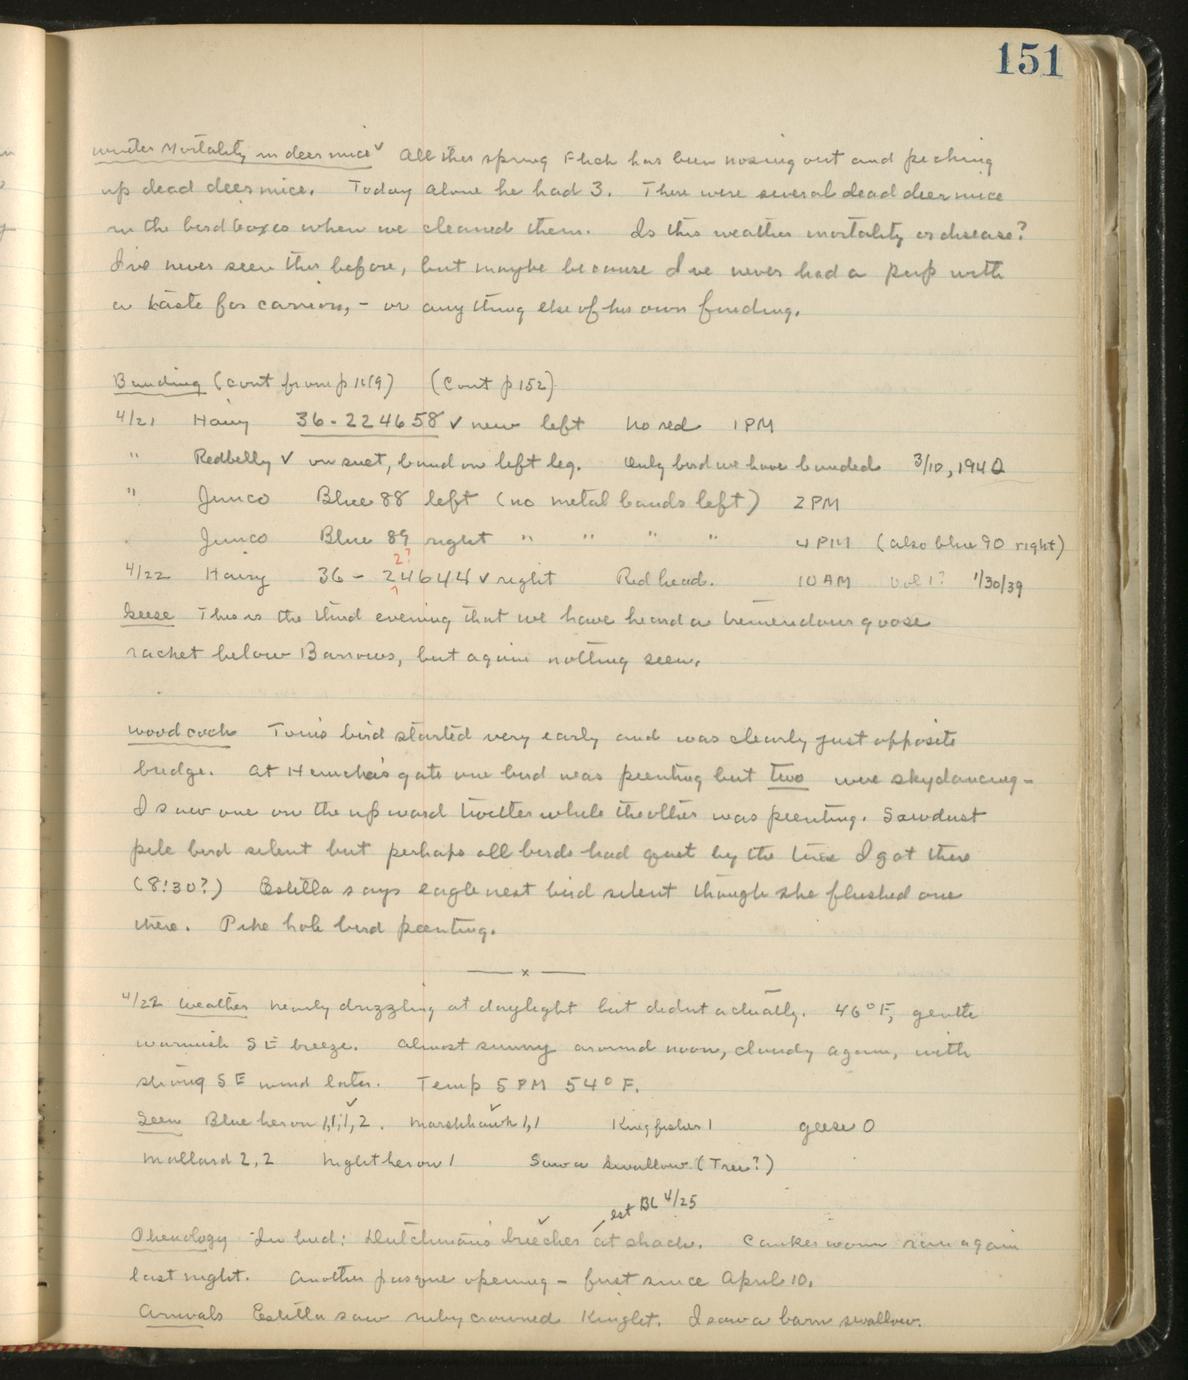 151
Winter Mortality in deer mice ✓ All this spring Flick has been nosing out and picking
up dead deer mice. Today alone he had 3. There were several dead deer mice
in the bird boxes when we cleaned them. Is this weather mortality or disease?
I've never seen this before, but maybe because I've never had a pup with
a taste for carrion, - or anything else of his own finding.
Banding (cont from p 119) (Cont p 152)
4/21 Hairy 36-224658 ✓ new left No red 1 PM
" Redbelly ✓ on suet, band on left leg. Only bird we have banded 3/10, 1940
" Junco Blue 88 left (no metal bands left) 2 PM
Junco Blue 89 right " " " " 4 PM (also blue 90 right)
2?
4/22 Hairy 36 - 24644 ✓ right Red head. 10 AM vol 1? 1/30/39
Geese This is the third evening that we have heard a tremendous goose
racket below Barrows, but again nothing seen.
Woodcock Tom's bird started very early and was clearly just opposite
bridge. At gate one bird was peenting but two were skydancing -
I saw one on the upward twitter while the other was peenting. Sawdust
pile bird silent but perhaps all birds had quit by the time I got there
(8:30?) Estella says eagle nest bird silent though she flushed one
there. Pike hole bird peenting.
x
4/22 Weather nearly drizzling at daylight but didnt actually. 46° F, gentle
warmish SE breeze. Almost sunny around noon, cloudy again, with
strong SE wind later. Temp 5 PM 54° F.
Seen Blue heron 1,1,1,2. Marshhawk 1,1 Kingfisher 1 geese 0
Mallard 2,2 Night heron 1 Saw a swallow (Tree?)
est BL 4/25
Phenology In bud: Dutchman's breeches at shack. Cankerworm ran again
last night. Another pasque opening - first since April 10.
Arrivals Estella saw ruby crowned Kinglet. I saw a barn swallow.